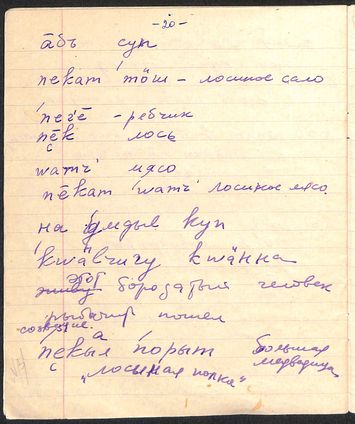 -20-
āбъ суп
пекат 'тӧш - лосиное сало
'пеге - рябчик
пе̄к лось
ватч' мясо
пе̄кат 'ватч' лосиное мясо.
на куп
'кwӓвчигу кwӓнна
этот бородатый человек
рыбачит пошел
созвездие.
пекыл 'порыт большая медведица
"лосиная полка"